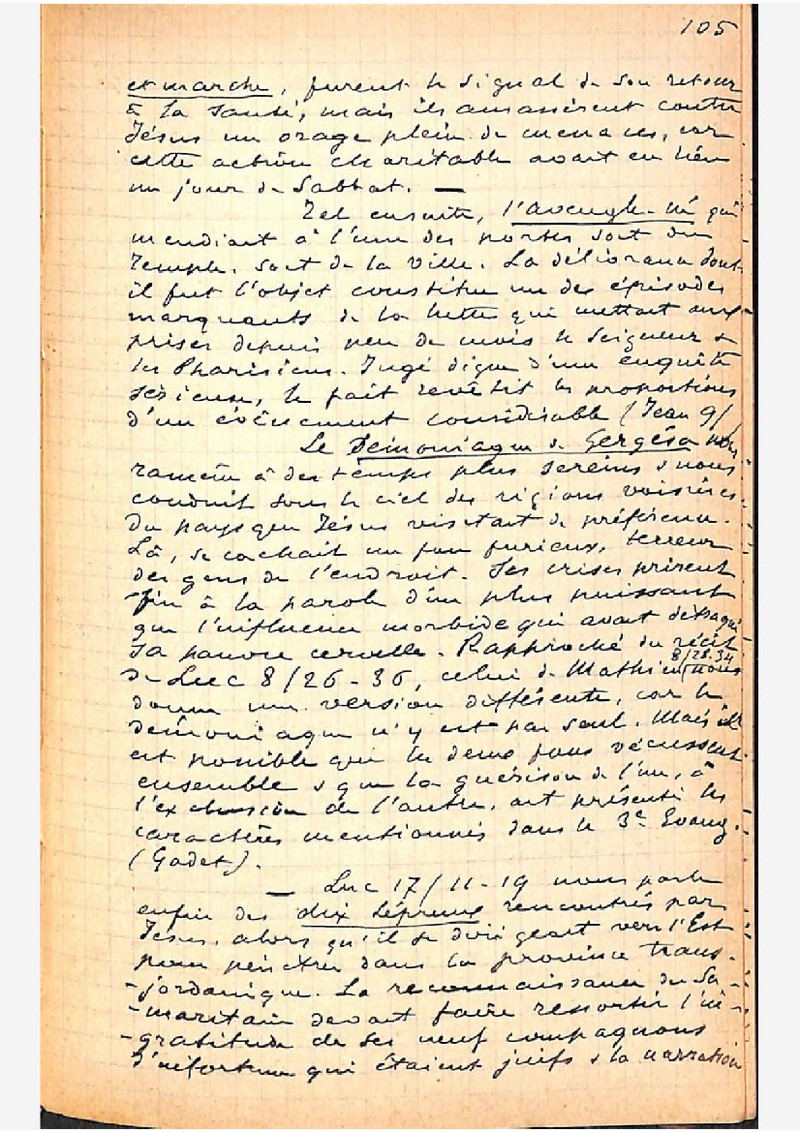 105
et marche, furent le signal de son retour
à la santé, mais ils amassèrent contre
Jésus un orage plein de menaces, car
cette action charitable avait eu lieu
un jour de Sabbat. —
Tel ensuite, l'aveugle-né qui
mendiait à l'une des portes soit du
Temple, soit de la ville. La délivrance dont
il fut l'objet constitue un des épisodes
marquants de la lutte qui mettait aux
prises depuis peu de mois le Seigneur &
les Pharisiens. Jugé digne d'une enquête
sérieuse, le fait revêtit les proportions
d'un événement considérable (Jean 9/
Le Démoniaque de Gergésa nous
ramène à des temps plus sereins & nous
conduit sous le ciel des régions voisines
du pays que Jésus visitait de préférence.
Là, se cachait un fou furieux, terreur
des gens de l'endroit. Ses crises prirent
fin à la parole d'un plus puissant
que l'influence morbide qui avait détraqué
sa pauvre cervelle. Rapproché du récit
8/28-34
de Luc 8/26-36, celui de Mathieu nous
donne une version différente, car le
démoniaque n'y est pas seul. Mais il
est possible que les deux fous vécussent
ensemble & que la guérison de l'un, à
l'exclusion de l'autre, ait présenté les
caractères mentionnés dans le 3e Evang.
(Godet).
— Luc 17/11-19 nous parle
enfin des dix lépreux rencontrés par
Jésus, alors qu'il se dirigeait vers l'Est
pour pénétrer dans la province trans-
-jordanique. La reconnaissance du Sa-
-maritain devait faire ressortir l'in-
-gratitude de ses neuf compagnons
d'infortune qui étaient juifs & la narration